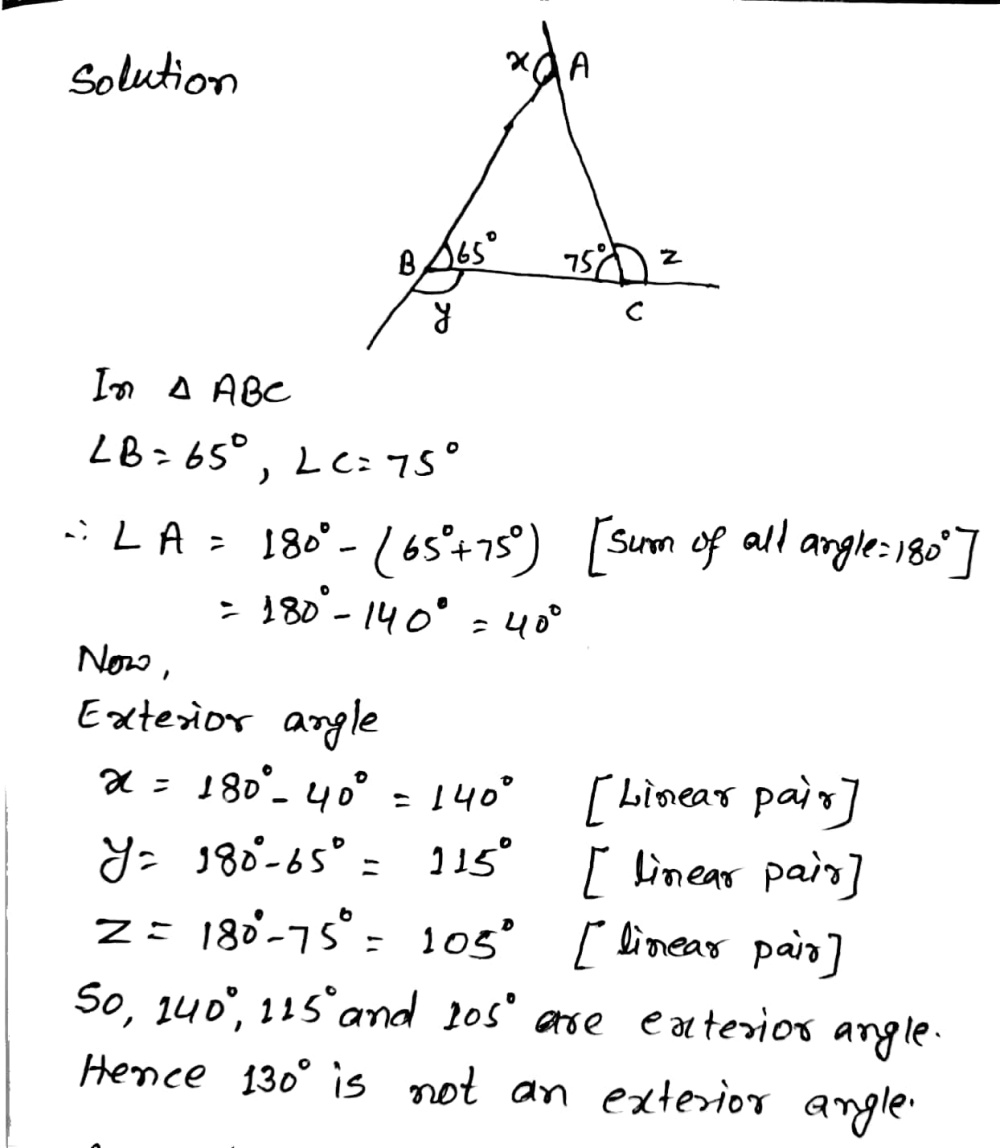 Solution
x A
B 65° 75° z
y C
In Δ ABC
∠B = 65°, ∠C = 75°
∴ ∠A = 180° - (65°+75°) [Sum of all angle=180°]
= 180° - 140° = 40°
Now,
Exterior angle
x = 180° - 40° = 140° [Linear pair]
y = 180° - 65° = 115° [linear pair]
z = 180° - 75° = 105° [linear pair]
So, 140°, 115° and 105° are exterior angle.
Hence 130° is not an exterior angle.